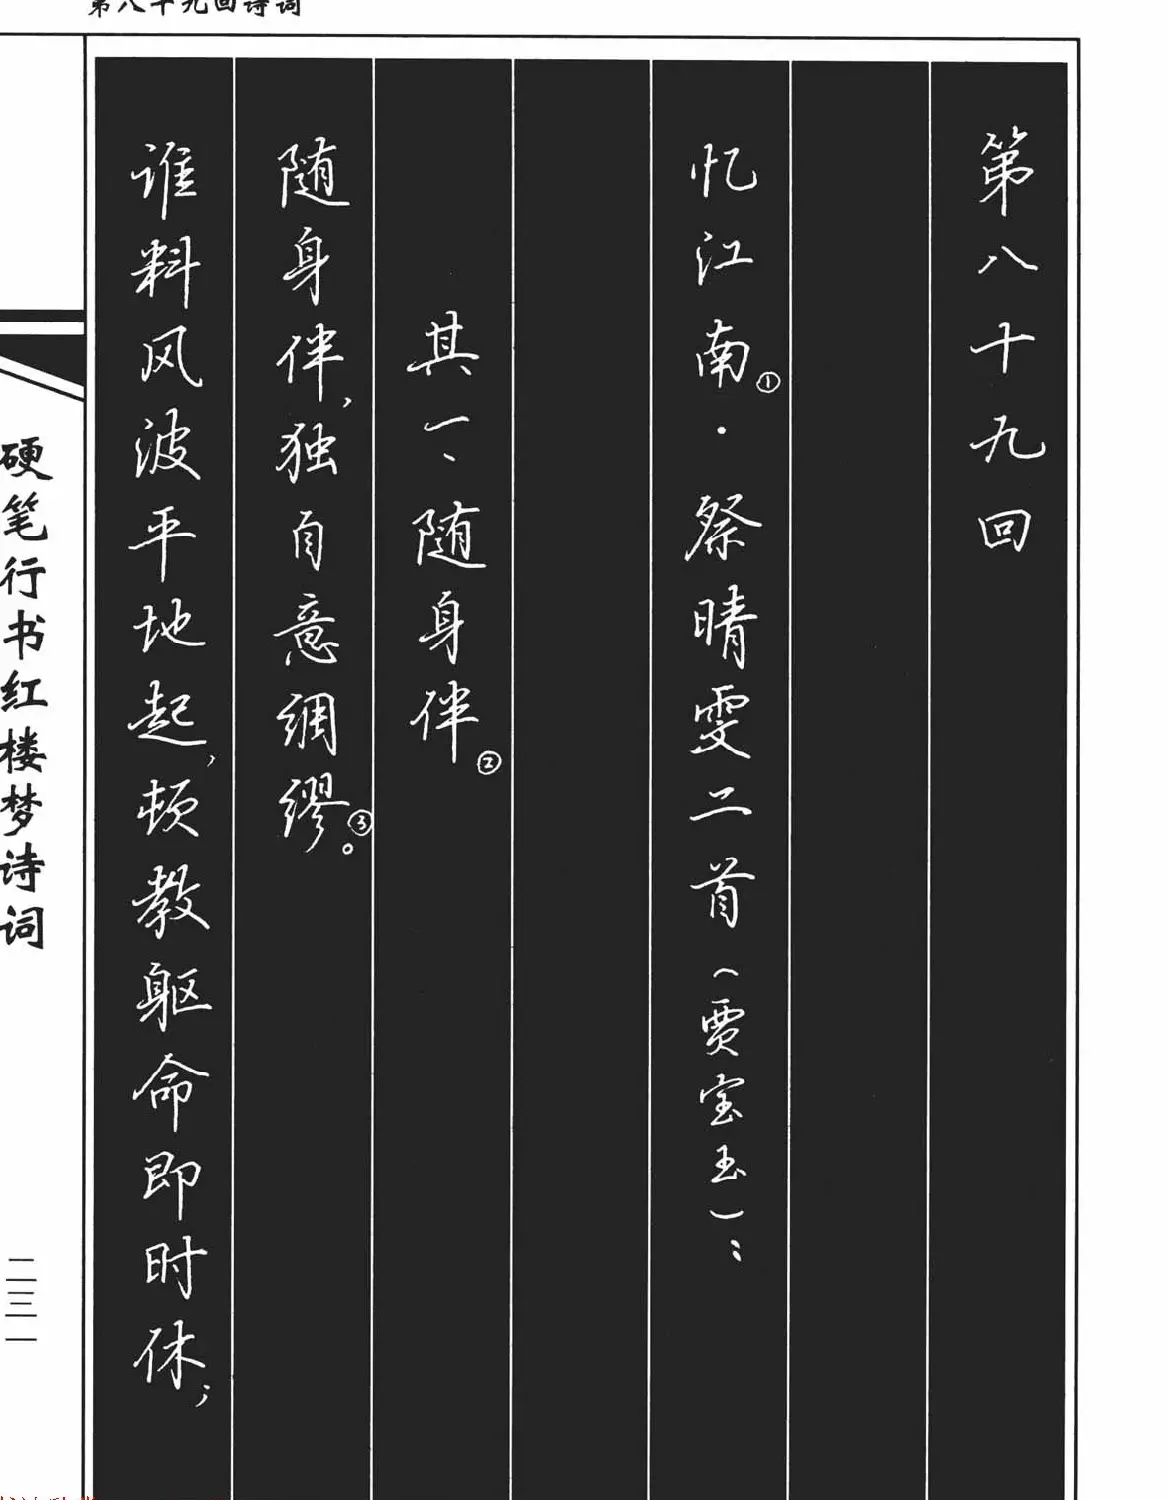 第八十九回诗词
第八十九回
忆江南①·祭晴雯二首（贾宝玉）：
其一、随身伴②
随身伴，独自意绸缪③。
谁料风波平地起，顿教躯命即时休；
硬笔行书红楼梦诗词
二三一